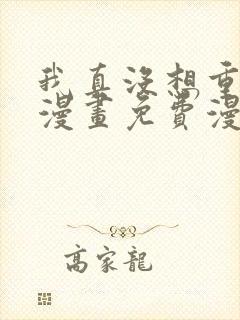 我真没想重
漫畫免費漫
高家龍